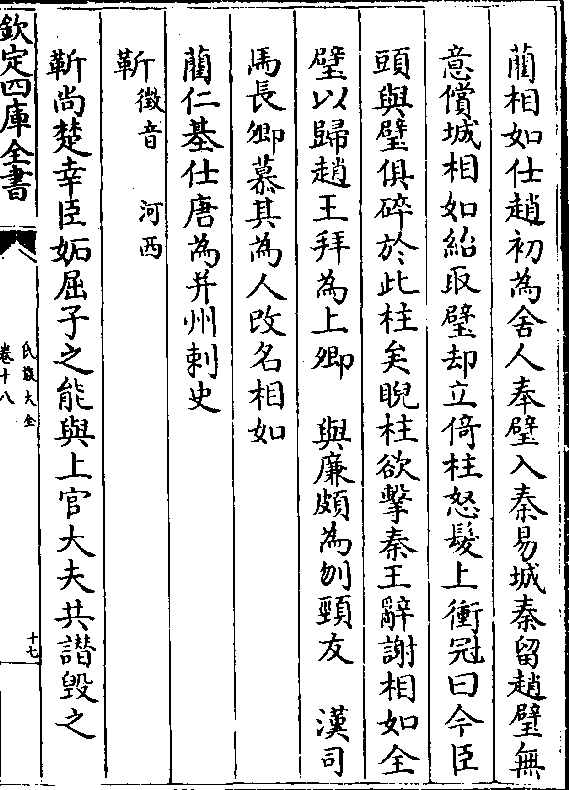 藺相如仕趙初為舍人奉璧入秦易城秦留趙璧無
意償城相如紿取璧却立倚柱怒髮上衝冠曰今臣
頭與璧俱碎於此柱矣睨柱欲擊秦王辭謝相如全
璧以歸趙王拜為上卿　與廉頗為刎頸友　漢司
馬長卿慕其為人改名相如
藺仁基仕唐為并州刺史
靳　徵音　河西
靳尚楚幸臣妬屈子之能與上官大夫共譖毀之
欽定四庫全書
氏族大全
卷十八
十七